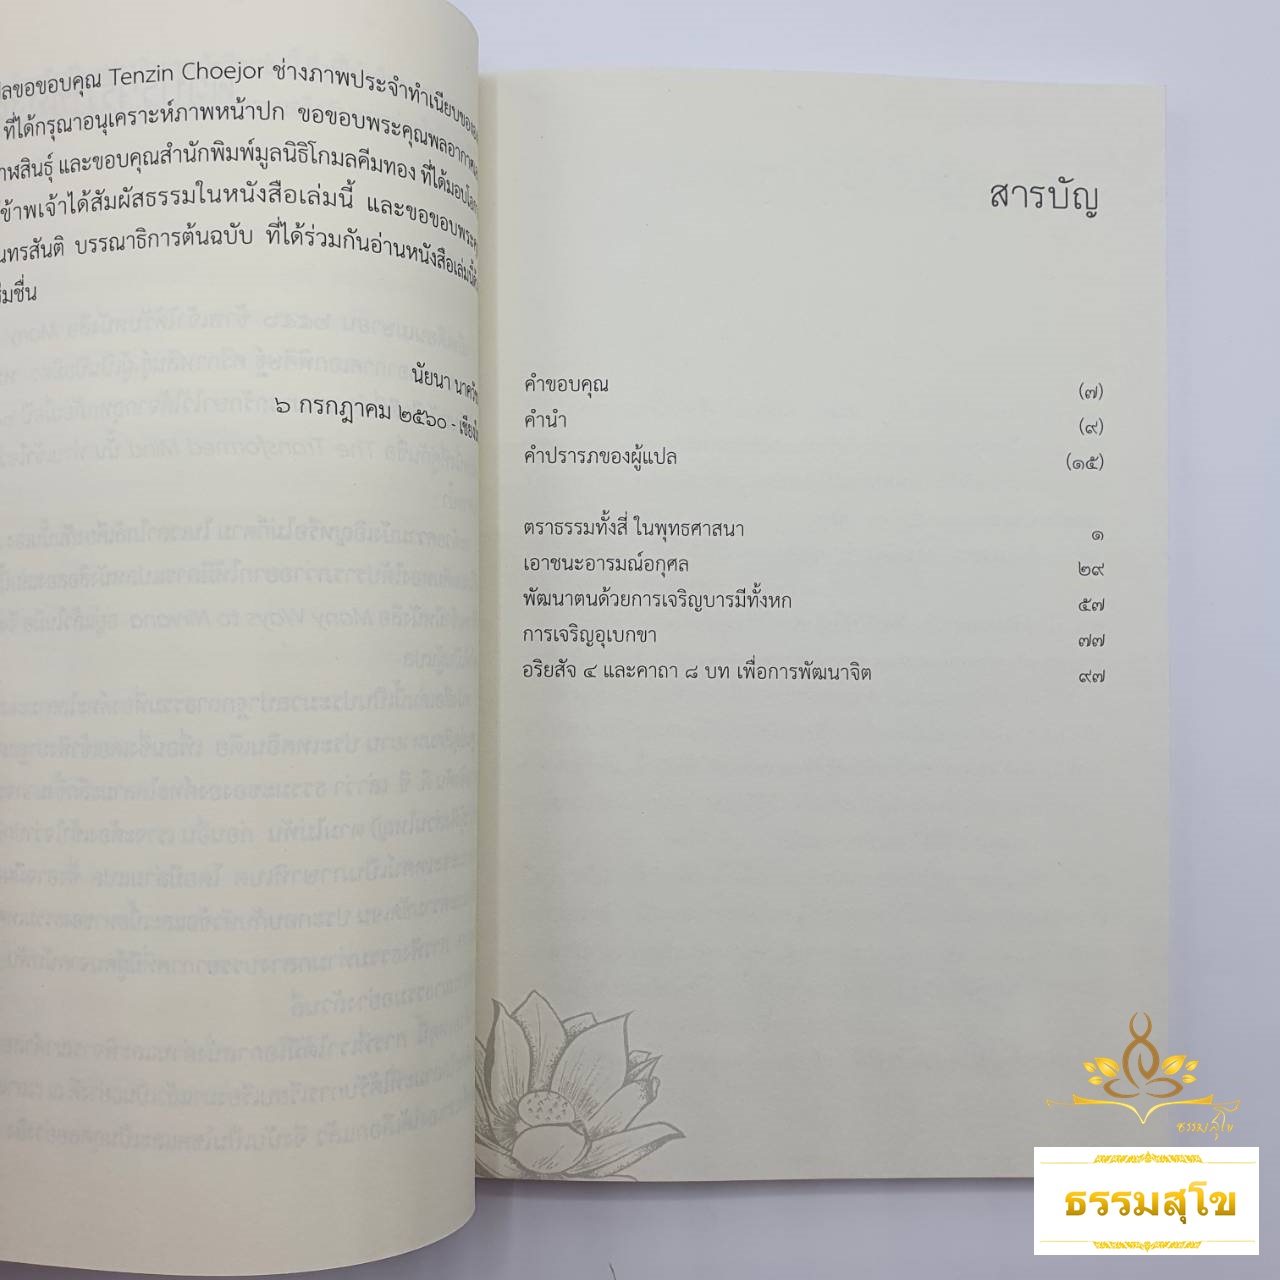 ลขอขอบคุณ Tenzin Choejor ช่างภาพประจำทำเนียบของ
ที่ได้กรุณาอนุเคราะห์ภาพหน้าปก ขอขอบพระคุณพลอากาศ
าฬสินธุ์ และขอบคุณสำนักพิมพ์มูลนิธิโกมลคีมทอง ที่ได้มอบ
ข้าพเจ้าได้สัมผัสธรรมในหนังสือเล่มนี้ และขอขอบพระคุ
นทรสันติ บรรณาธิการต้นฉบับ ที่ได้ร่วมกันอ่านหนังสือเล่มนี้
มชื่น
นัยนา นาค
๖ กรกฎาคม ๒๕๖๐ -
สารบัญ
คำขอบคุณ (๗)
คำนำ (๙)
คำปรารภของผู้แปล (๑๕)
ตราธรรมทั้งสี่ ในพุทธศาสนา ๑
เอาชนะอารมณ์อกุศล ๒๙
พัฒนาตนด้วยการเจริญบารมีทั้งหก ๕๗
การเจริญอุเบกขา ๗๗
อริยสัจ ๔ และคาถา ๘ บท เพื่อการพัฒนาจิต ๙๗
ธรรมสุโข
ธรรมสุโข